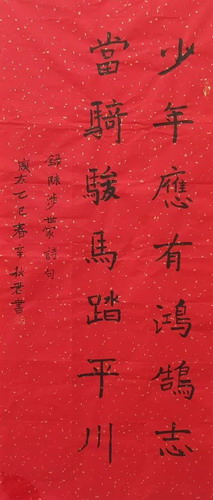 少年應有鴻鵠志
當騎駿馬踏平川
錄陳涉世家詩句
歲次乙巳春辛秋君書